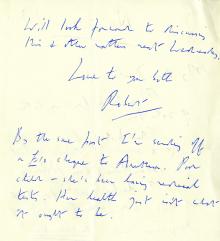 Will look forward to discussing
this & other matters next Wednesday.
Love to you both
Robert
By the same post I'm sending off
a £10 cheque to Anthea. Poor
child - she's been having
tests. Her health just isn't what
it ought to be.